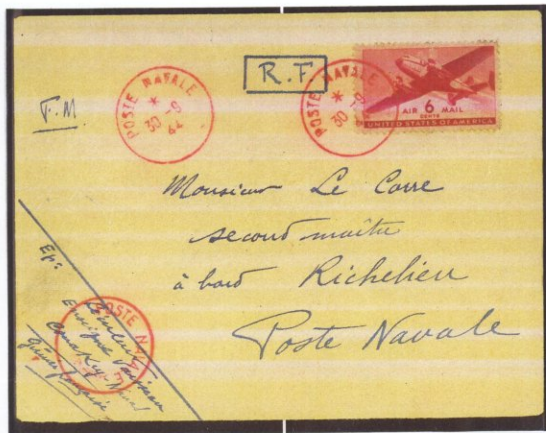 POSTE NAVALE
*
30 -9
R.F
POSTE NAVALE
*
30
AIR 6 MAIL
CENTS
UNITED STATES OF AMERICA
F.M
Monsieur Le Corre
second maître
à bord Richelieu
Poste Navale
Ep:
POSTE NAVALE
Enseigne Vaisseau
Guinée française